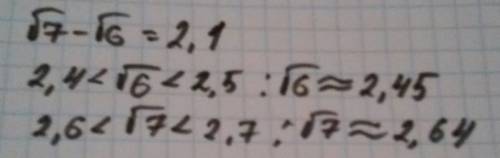 √7-√6=2,1
2,4<√6<2,5 : √6≈2,45
2,6<√7<2,7 : √7≈2,64